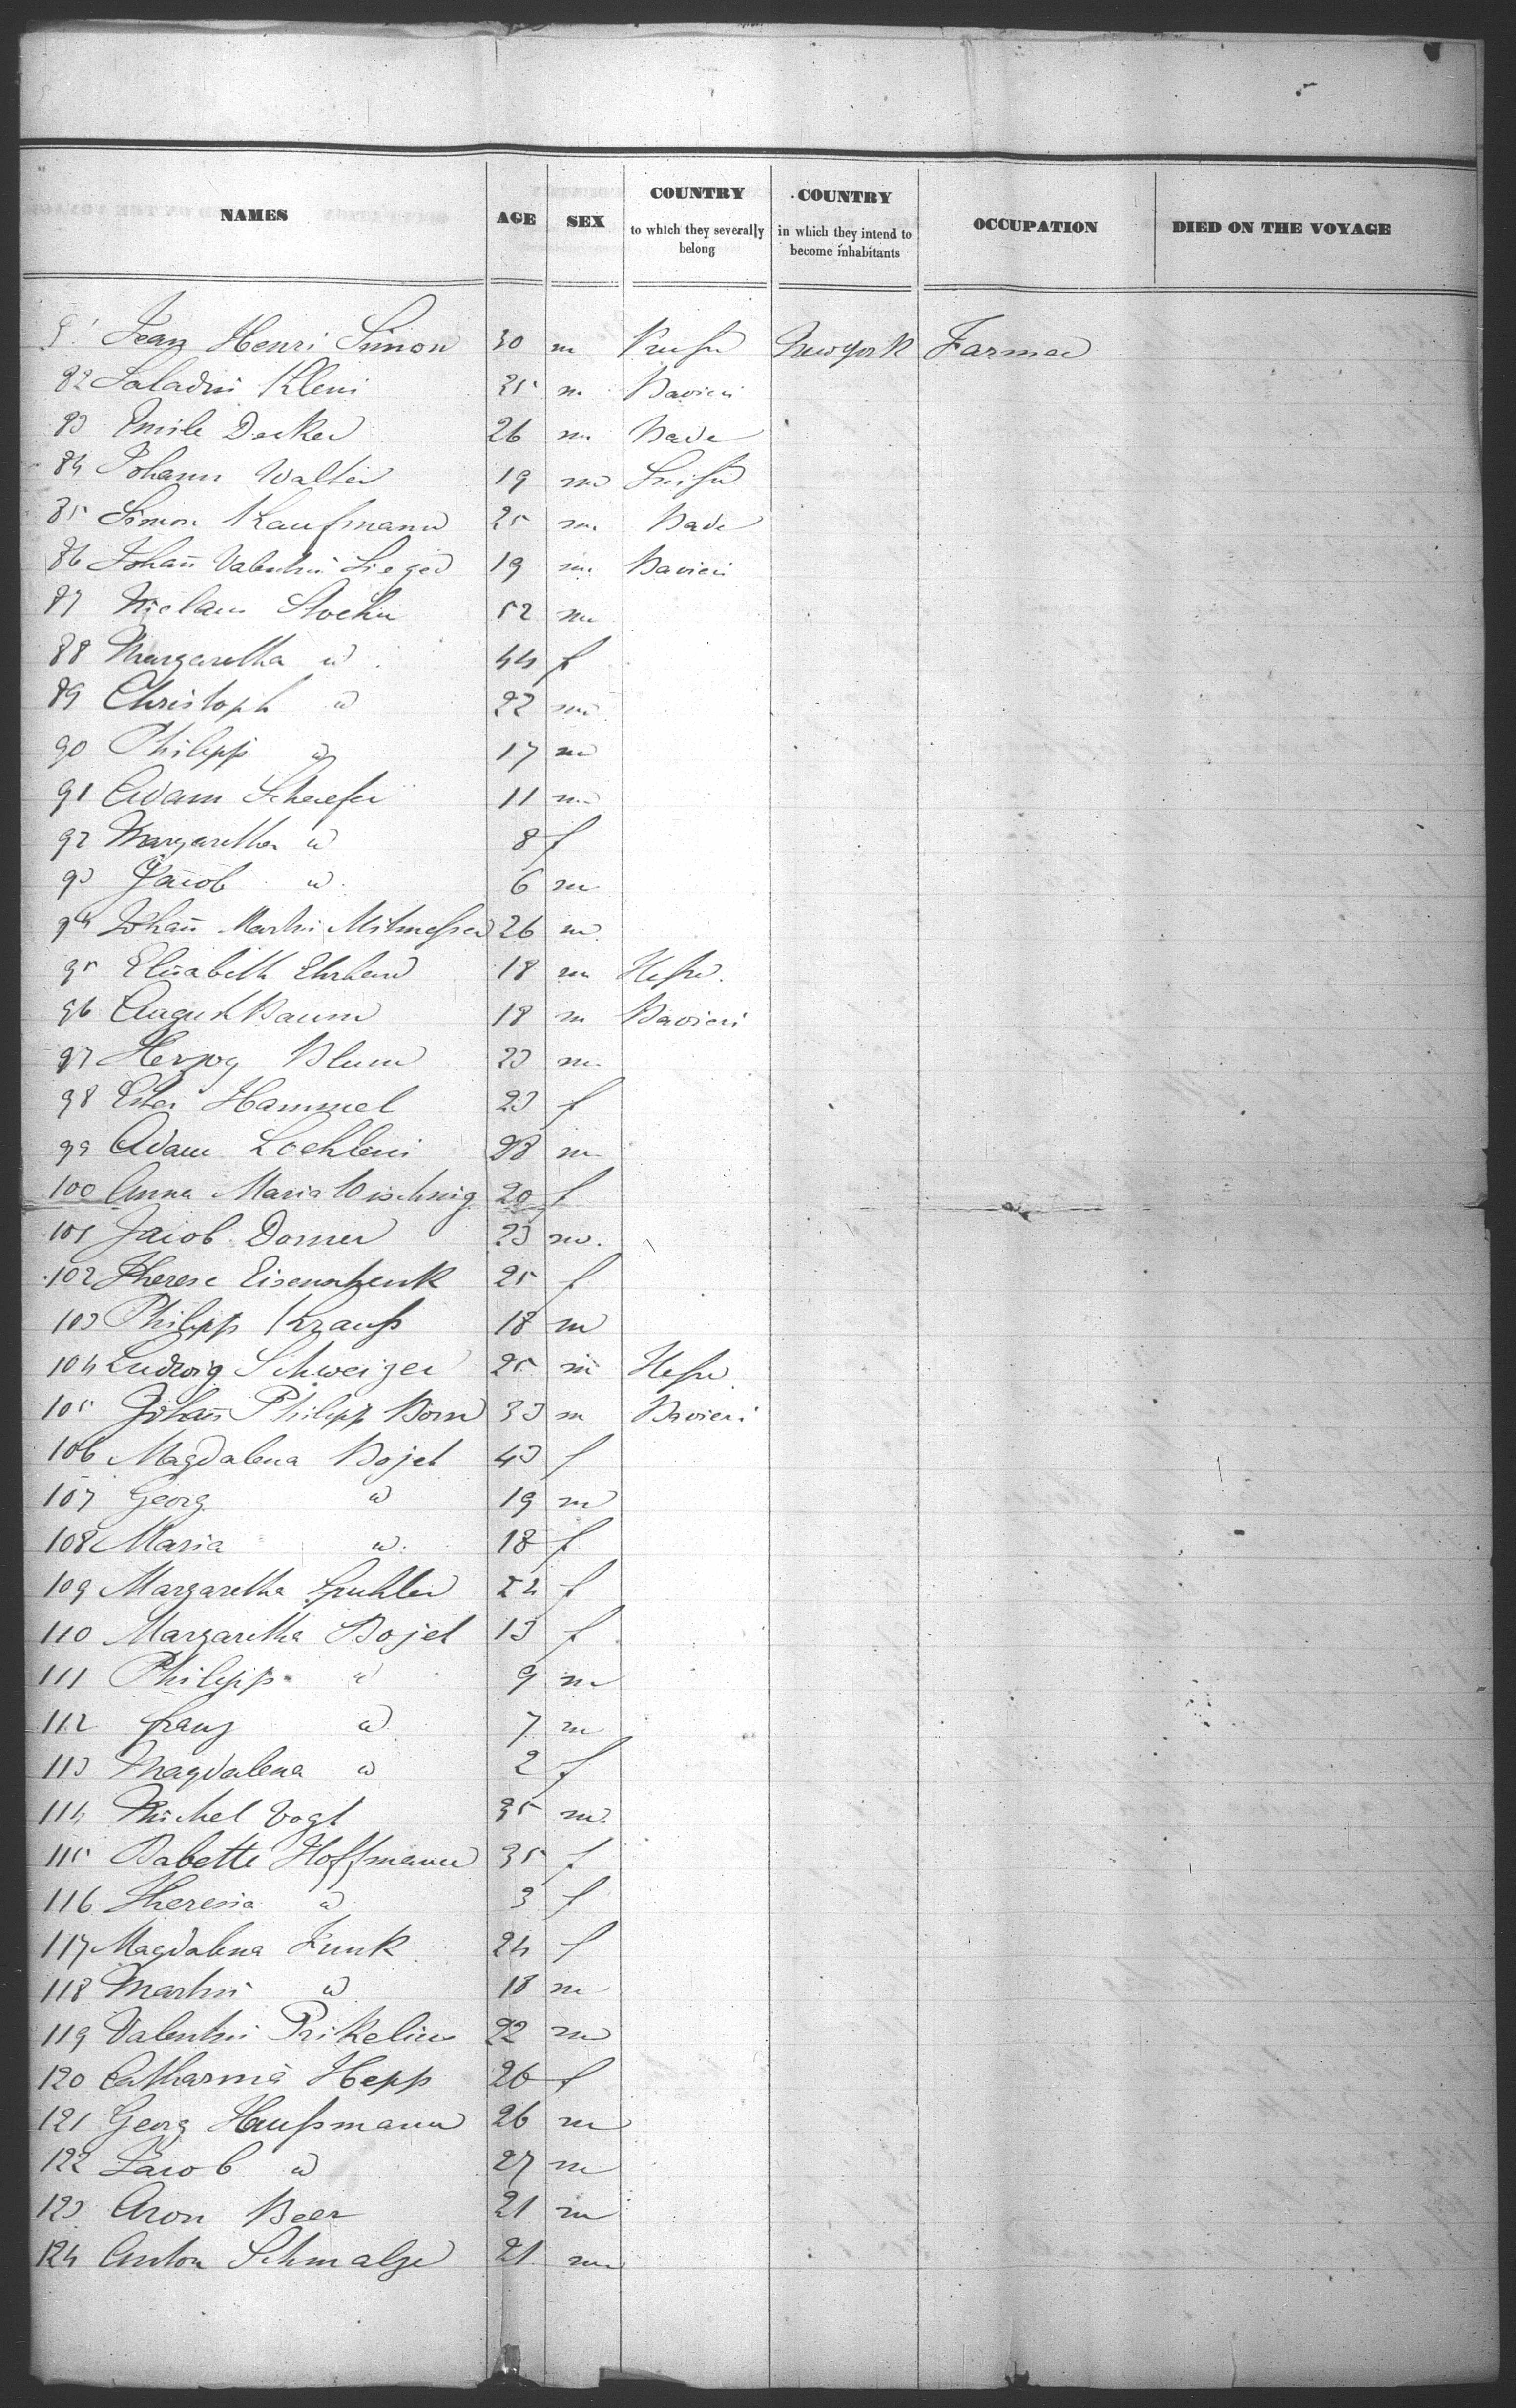 NAMES AGE SEX COUNTRY to which they severally belong COUNTRY in which they intend to become inhabitants OCCUPATION DIED ON THE VOYAGE
Jean Henri Simon 30 m Newyork Farmer
82 Kleni 35 m Bavieri
83 Emile Decker 26 m Bade
84 Johann Walter 19 m
85 Simon Kaufmann 25 m Bade
86 Johañ Valentin Sieger 19 m Bavieri
87 52 m
88 Margaretha id 44 f
89 Christoph id 22 m
90 Philipp id 17 m
91 Adam Schaefer 11 m
92 Margaretha id 8 f
93 Jacob id 6 m
94 Johañ Martin 26 m
95 Elisabeth 18 m Hesse
96 August Baum 18 m Bavieri
97 Herzog Blum 23 m
98 Hammel 23 f
99 Adam 28 m
100 Anna Maria 20 f
101 Jacob Dorner 23 m
102 Therese 25 f
103 Philipp Krauß 18 m
104 Ludwig Schweizer 25 m Hesse
105 Johañ Philipp Born 33 m Bavieri
106 Magdalena Bojet 43 f
107 Georg id 19 m
108 Maria id 18 f
109 Margaretha 24 f
110 Margaretha Bojet 13 f
111 Philipp id 9 m
112 franz id 7 m
113 Magdalena id 2 f
114 Michel Vogt 35 m
115 Babette Hoffmann 35 f
116 Theresia id 3 f
117 Magdalena Funk 24 f
118 Martin id 18 m
119 Valentin 22 m
120 Catharina Hepp 26 f
121 Georg Haußmann 26 m
122 Jacob id 27 m
123 Aron Beer 21 m
124 Anton Schmalze 21 m